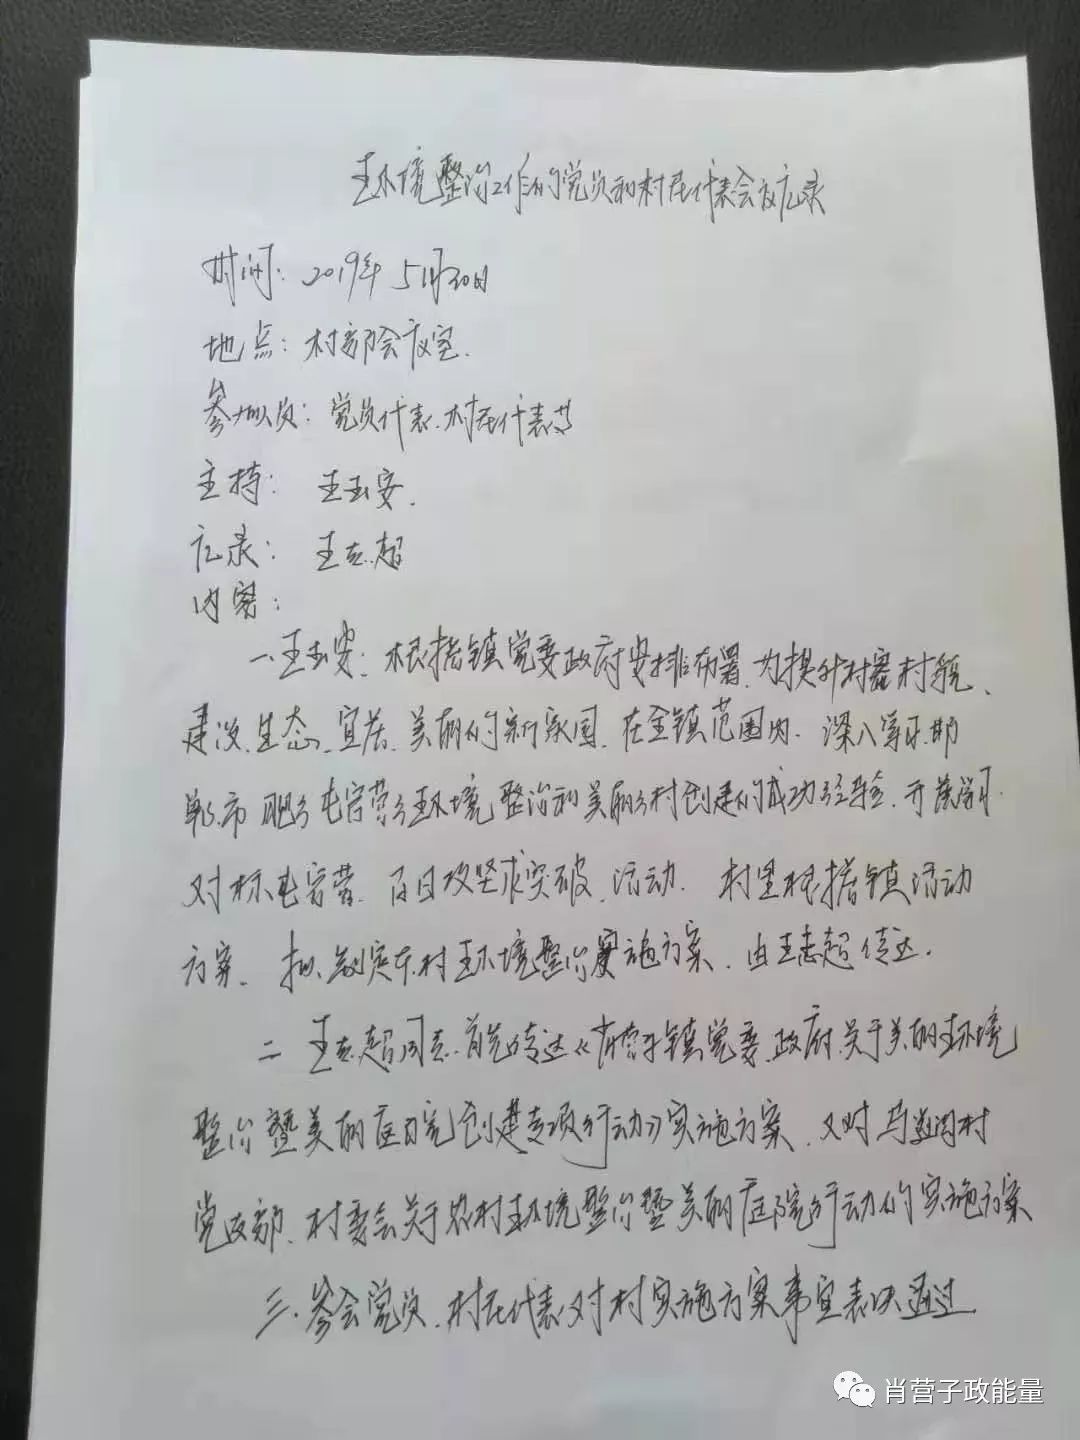 环境整治工作的党员和村民代表会议记录
时间：2019年5月30日
地点：村部会议室.
参加人员：党员代表.村民代表等
主持：王玉安.
记录：王志超
内容：
一.王玉安：根据镇党委政府安排布署.为提升村容村貌、
建设.生态、宜居、美丽的新家园.在全镇范围内.深入学习邯
郸市肥乡屯容营乡环境整治和美丽乡村创建的成功经验.开展学习.
对标屯容营、百日攻坚求突破.活动.村里根据镇活动
方案、拟制定本村环境整治实施方案.由王志超传达.
二 王志超同志.首先传达《肖营子镇党委.政府.关于美丽环境
整治暨美丽庭院创建专项行动》实施方案.又对马道沟村
党支部、村委会关于农村环境整治暨美丽庭院行动的实施方案
三.参会党员.村民代表对村实施方案事宜表决通过.
肖营子政能量